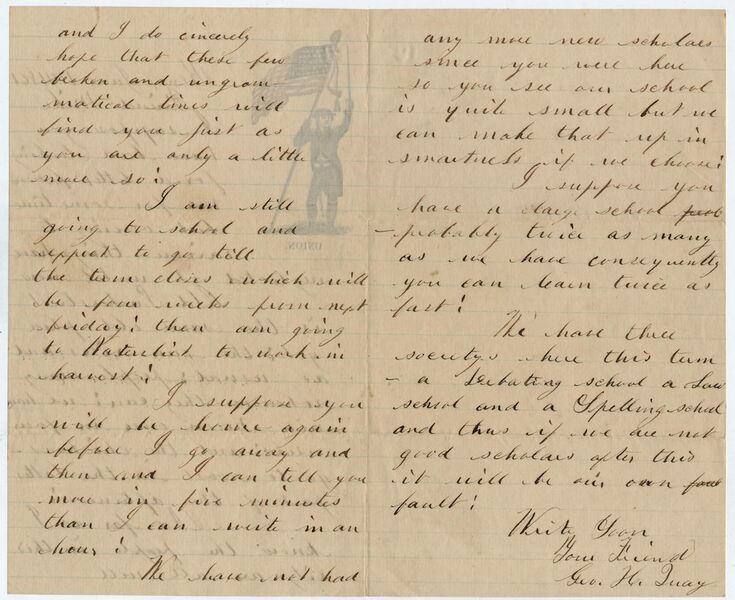 and I do sincerely
hope that these few
broken and ungram-
matical lines will
find you just as
you are only a little
more so!
I am still
going to school and
expect to go till
the term closes which will
be four weeks from next
friday! then am going
to to work in
harvest!
I suppose you
will be home again
before I go away and
then and I can tell you
more in five minutes
than I can write in an
hour!
We have not had
UNION.
any more new scholars
since you were here
so you see our school
is quite small but we
can make that up in
smartness if we choose!
I suppose you
have a large school
- probably twice as many
as we have consequently
you can learn twice as
fast!
We have three
societys here this term
- a Debating school a Law
school and a Spelling school
and thus if we are not
good scholars after this
it will be our own
fault!
Write Soon
Your Friend
Geo. H. Quay